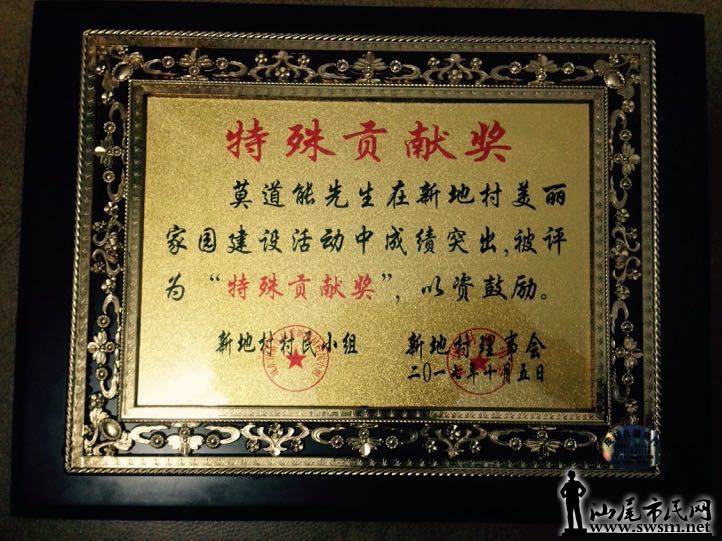 特殊贡献奖
莫道能先生在新地村美丽
家园建设活动中成绩突出,被评
为“特殊贡献奖”，以资鼓励。
新地村村民小组 新地村理事会
二0一七年十月五日
汕尾市民网
www.swsm.net